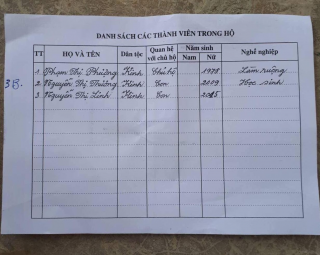 DANH SÁCH CÁC THÀNH VIÊN TRONG HỘ
TT HỌ VÀ TÊN Dân tộc Quan hệ với chủ hộ Năm sinh Nam Nữ Nghề nghiệp
1 Phạm Thị Phượng Kinh Chủ hộ 1978 Làm ruộng
3B. 2 Nguyễn Thị Thương Kinh Con 2009 Học sinh
3 Nguyễn Thị Linh Kinh Con 2015